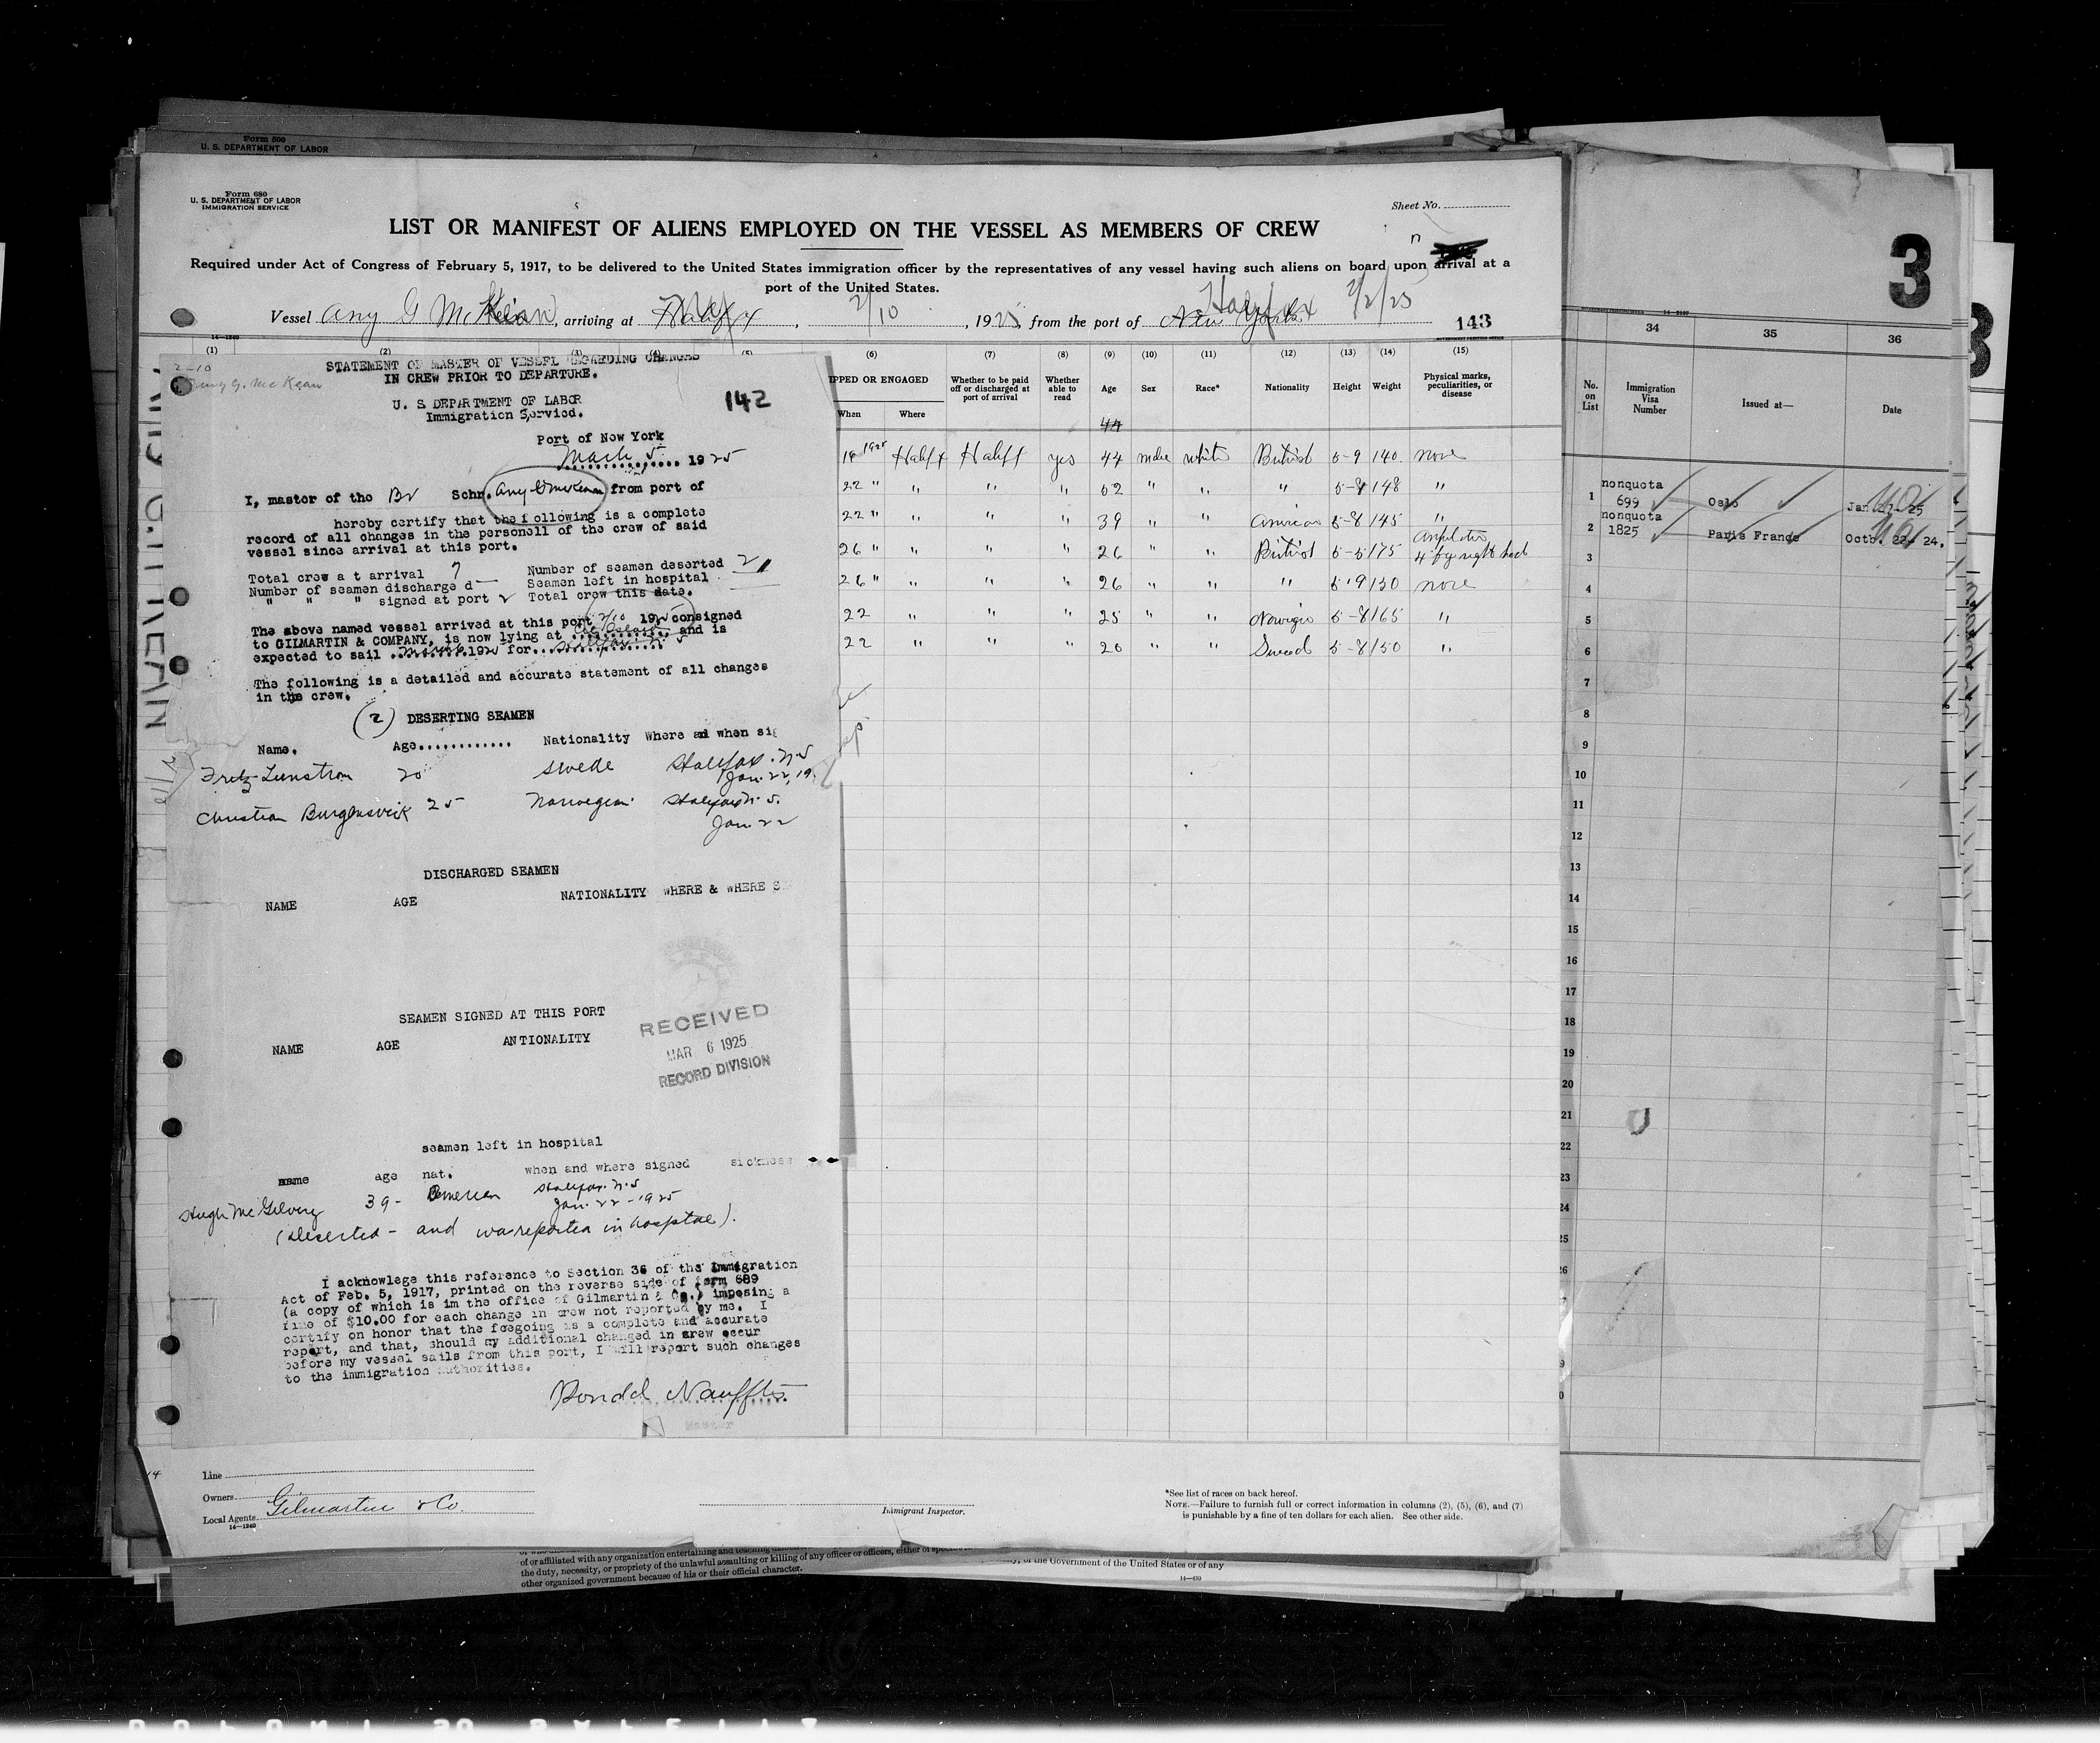 Form 500
U. S. DEPARTMENT OF LABOR
Form 680
U. S. DEPARTMENT OF LABOR
IMMIGRATION SERVICE
Sheet No.
LIST OR MANIFEST OF ALIENS EMPLOYED ON THE VESSEL AS MEMBERS OF CREW
Required under Act of Congress of February 5, 1917, to be delivered to the United States immigration officer by the representatives of any vessel having such aliens on board upon arrival at a
port of the United States.
Vessel Any G McKean, arriving at Halifx, 2/10, 1925, from the port of New York Halifax 2/2/25
143
14—1240
(1) (2) (3) (4) (5) (6) (7) (8) (9) (10) (11) (12) (13) (14) (15)
IPPED OR ENGAGED
When Where
Whether to be paid off or discharged at port of arrival
Whether able to read
Age Sex Race* Nationality Height Weight
Physical marks, peculiarities, or disease
44
18 1925 Halifx Halifx yes 44 male white British 5-9 140 none
22 " " " " 52 " " " 5-8 148 "
22 " " " " 39 " " American 5-8 145 "
26 " " " " 26 " " British 5-5 175 4 fg right hand
26 " " " " 26 " " " 5-9 150 none
22 " " " 25 " " Norwign 5-8 165 "
22 " " " 20 " " Sweed 5-8 150 "
2-10
McKean
STATEMENT OF MASTER OF VESSEL REGAEDING CHANGES
IN CREW PRIOR TO DEPARTURE.
142
U. S DEPARTMENT OF LABOR
Immigration Serviod.
Port of New York
March 5 1925
I, master of tho Br Schr. Any G McKean from port of
hereby certify that the following is a complete
record of all changes in the personell of the crew of said
vessel since arrival at this port.
Total crew a t arrival 7 Number of seamen deserted 2
Number of seamen discharge d — Seamen left in hospital
" " " signed at port 2 Total crew this date.
The above named vessel arrived at this port 2/10 1925 consigned
to GILMARTIN & COMPANY, is now lying at and is
expected to sail 192 for
The following is a detailed and accurate statement of all changes
in the crew.
(2) DESERTING SEAMEN
Name. Age............ Nationality Where ad when sig
Fritz Lunstrom 20 Swede Halifax. N.S
Jan. 22, 19
Christian Burglusvick 25 Norwegian Halifax N. S.
Jan. 22
DISCHARGED SEAMEN
NAME AGE NATIONALITY WHERE & WHERE S
SEAMEN SIGNED AT THIS PORT
NAME AGE ANTIONALITY
RECEIVED
MAR 6 1925
RECORD DIVISION
seamen left in hospital
name age nat. when and where signed sickness
Hugh McGilvery 39- American Halifax. N.S
Jan. 22 - 1925
(Deserted - and was reported in hospital).
I acknowlege this reference to Section 36 of the Immigration
Act of Feb. 5, 1917, printed on the reverse side of form 689
(a copy of which is im the office of Gilmartin & Co.) imposing a
fine of $10.00 for each change in crew not reported by me. I
certify on honor that the foegoing is a complete and accurate
report, and that, should my additional changed in crew occur
before my vessel sails from this port, I will report such changes
to the immigration authorities.
Ronald Nauffts
Master
Line
Owners
Local Agents Gilmartin & Co.
14—1240
Immigrant Inspector.
*See list of races on back hereof.
NOTE.—Failure to furnish full or correct information in columns (2), (5), (6), and (7)
is punishable by a fine of ten dollars for each alien. See other side.
of or affiliated with any organization entertaining and teaching
the duty, necessity, or propriety of the unlawful assaulting or killing of any officer or officers, either of
other organized government because of his or their official character.
the Government of the United States or of any
14—430
3
34 35 36
No. on List
Immigration Visa Number
Issued at—
Date
1 nonquota 699 Oslo Jan 25
2 nonquota 1825 Paris France Octb. 22- 24.
3
4
5
6
7
8
9
10
11
12
13
14
15
16
17
18
19
20
21
22
23
24
25
26